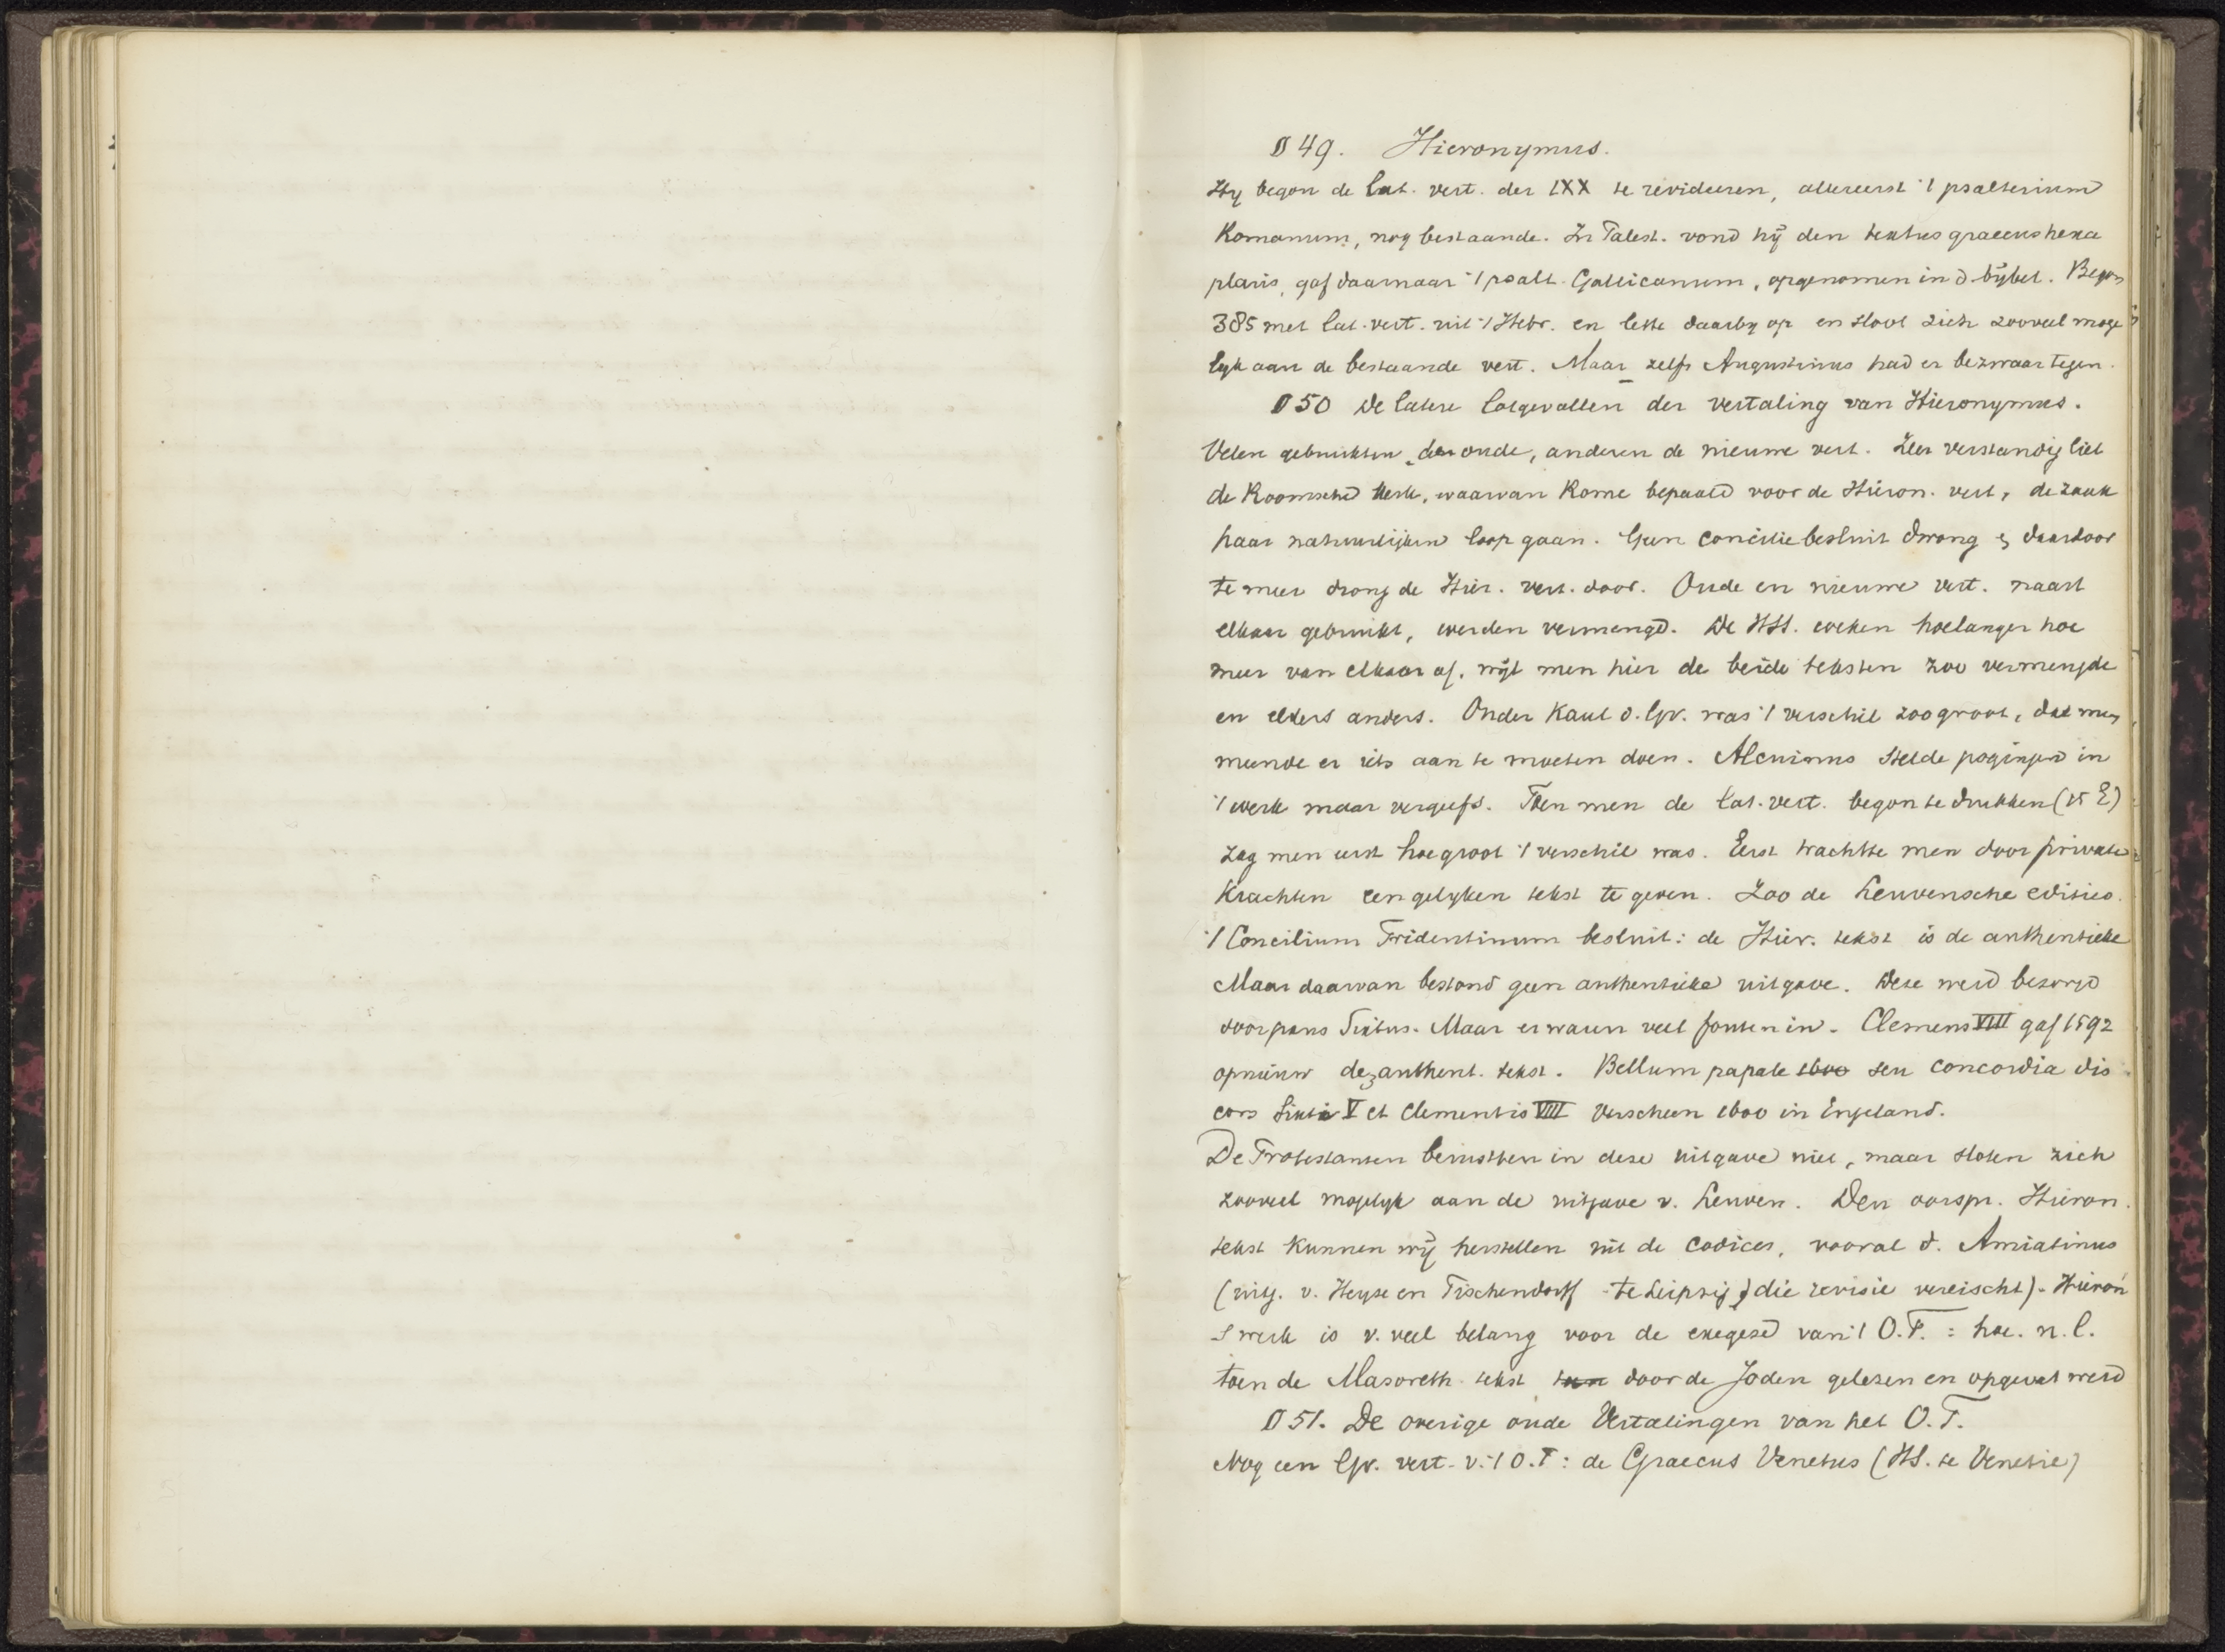 § 49. Hieronymus.
Hy begon de lat. vert. der LXX te revideeren, allereerst 't psalterium
Romanum, nog bestaande. In Palest. vond hij den textus graecus hexa
plaris, gaf daarnaar 't psalt. Gallicanum, opgenomen in d. bijbel. Begon
385 met lat. vert. uit 't Hebr. en lette daarby op en sloot zich zooveel moge
lyk aan de bestaande vert. Maar zelfs Augustinus had er bezwaar tegen.
§ 50 De latere lotgevallen der vertaling van Hieronymus.
Velen gebruikten de oude, anderen de nieuwe vert. Zeer verstandig liet
de Roomsche kerk, waarvan Rome bepaald voor de Hieron. vert, de zaak
haar natuurlijken loop gaan. Geen conciliebesluit drong & daardoor
te meer drong de Hier. vert. door. Oude en nieuwe vert. naast
elkaar gebruikt, werden vermengd. De HSS. weken hoelanger hoe
meer van elkaar af, wijl men hier de beide teksten zoo vermengde
en elders anders. Onder Karel d. Gr. was 't verschil zoo groot, dat men
meende er iets aan te moeten doen. Alcuinus stelde pogingen in
't werk maar vergeefs. Toen men de Lat. vert. begon te drukken (15 E)
zag men eerst hoe groot 't verschil was. Eerst trachtte men door private
krachten een gelyken tekst te geven. Zoo de Leuvensche edities.
't Concilium Tridentinum besluit: de Hier. tekst is de authentieke
Maar daarvan bestond geen authentieke uitgave. Deze werd bezorgd
door paus Sixtus. Maar er waren veel fouten in. Clemens VIII gaf 1592
opnieuw de authent. tekst. Bellum papale 1600 seu concordia dis
cors Sixti V et Clementis VIII verscheen 1600 in Engeland.
De Protestanten berustten in deze uitgave niet, maar sloten zich
zooveel mogelyk aan de uitgave v. Leuven. Den oorspr. Hieron.
tekst kunnen wij herstellen uit de codices, vooral d. Amiatinus
(uitg. v. Heyse en Tischendorff te Leipzig, die revisie vereischt). Hieron
s werk is v. veel belang voor de exegese van 't O.T. : hoe. n.l.
toen de Masoreth. tekst door de Joden gelezen en opgevat werd
§ 51. De overige oude Vertalingen van het O.T.
Nog een Gr. vert. v. 't O.T : de Graecus Venetus (HS. te Venetie)